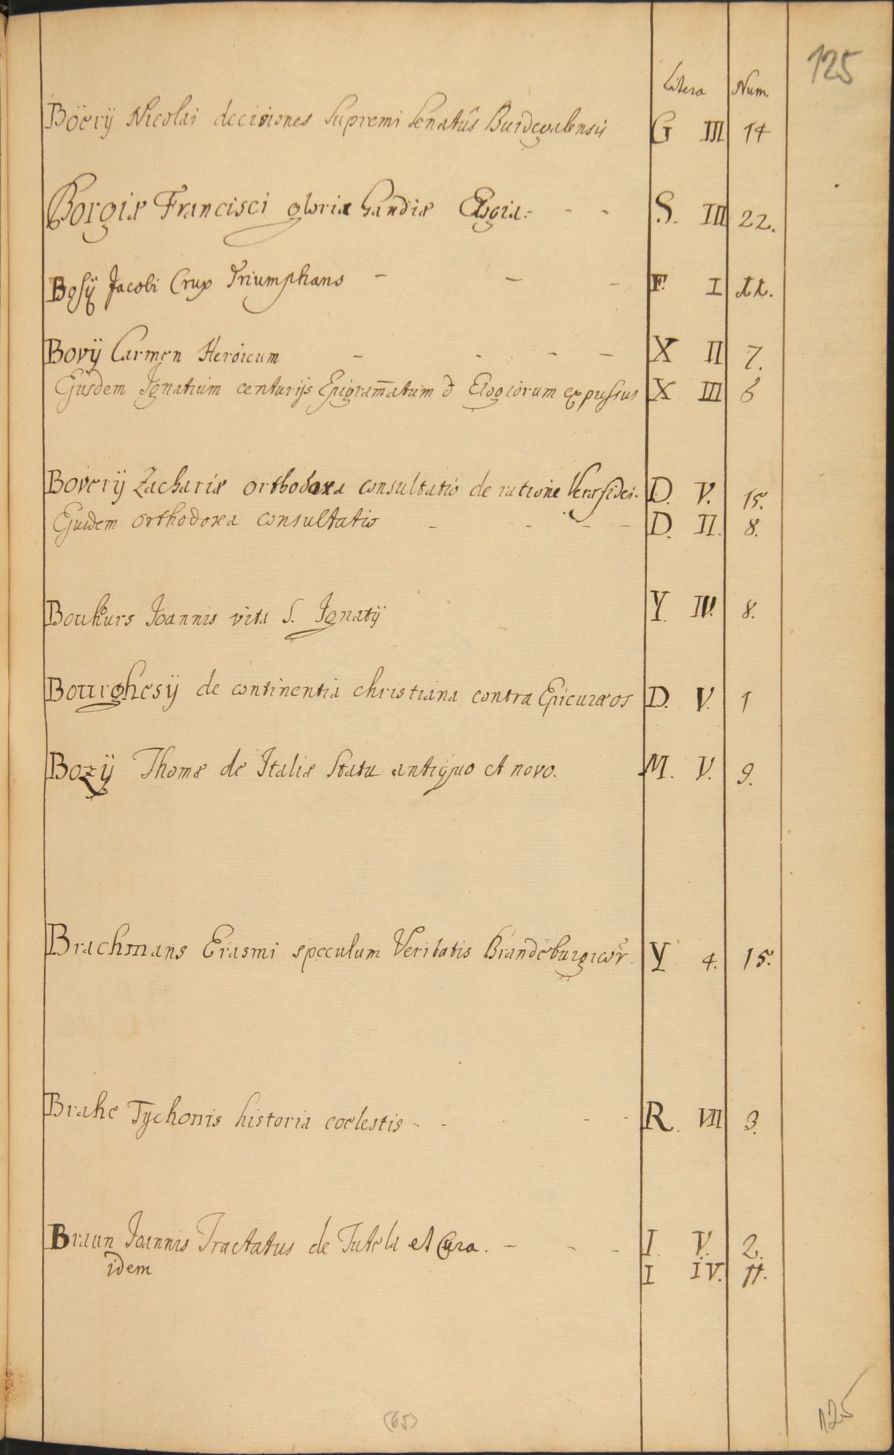 125
Litera Num.
Böerÿ Nicolai decisiones Supremi Senatûs Burdegalensis G III 14
Borgiæ Francisci gloria Gandiæ Elogia: - - S. III 22.
Bosÿ Jacobi Crux Triumphans - - - F. I 11.
Bovÿ Carmen Heroicum - - - - X II 7.
Ejusdem Ignatium centurijs Epigram̄atum & Elogiorum expressus X III 6
Boverÿ Zachariæ orthodoxa consultatio de ratione veræ fidei. D. V. 15.
Ejusdem orthodoxa consultatio - - - - D. II. 8.
Bouhurs Joannis vita S. Ignatÿ Y IV. 8.
Bourghesÿ de continentia christiana contra Epicuræos D. V. 1
Bozÿ Thomæ de Italiæ Statu antiquo et novo. M. V. 9.
Brachmans Erasmi speculum Veritatis Y 4. 15.
Brahe Tychonis historia coelestis - - - - R. VII 3.
Braun Joannis Tractatus de Tutela et Cura. - - - I. V. 2.
idem I IV. 11.
(65)
125